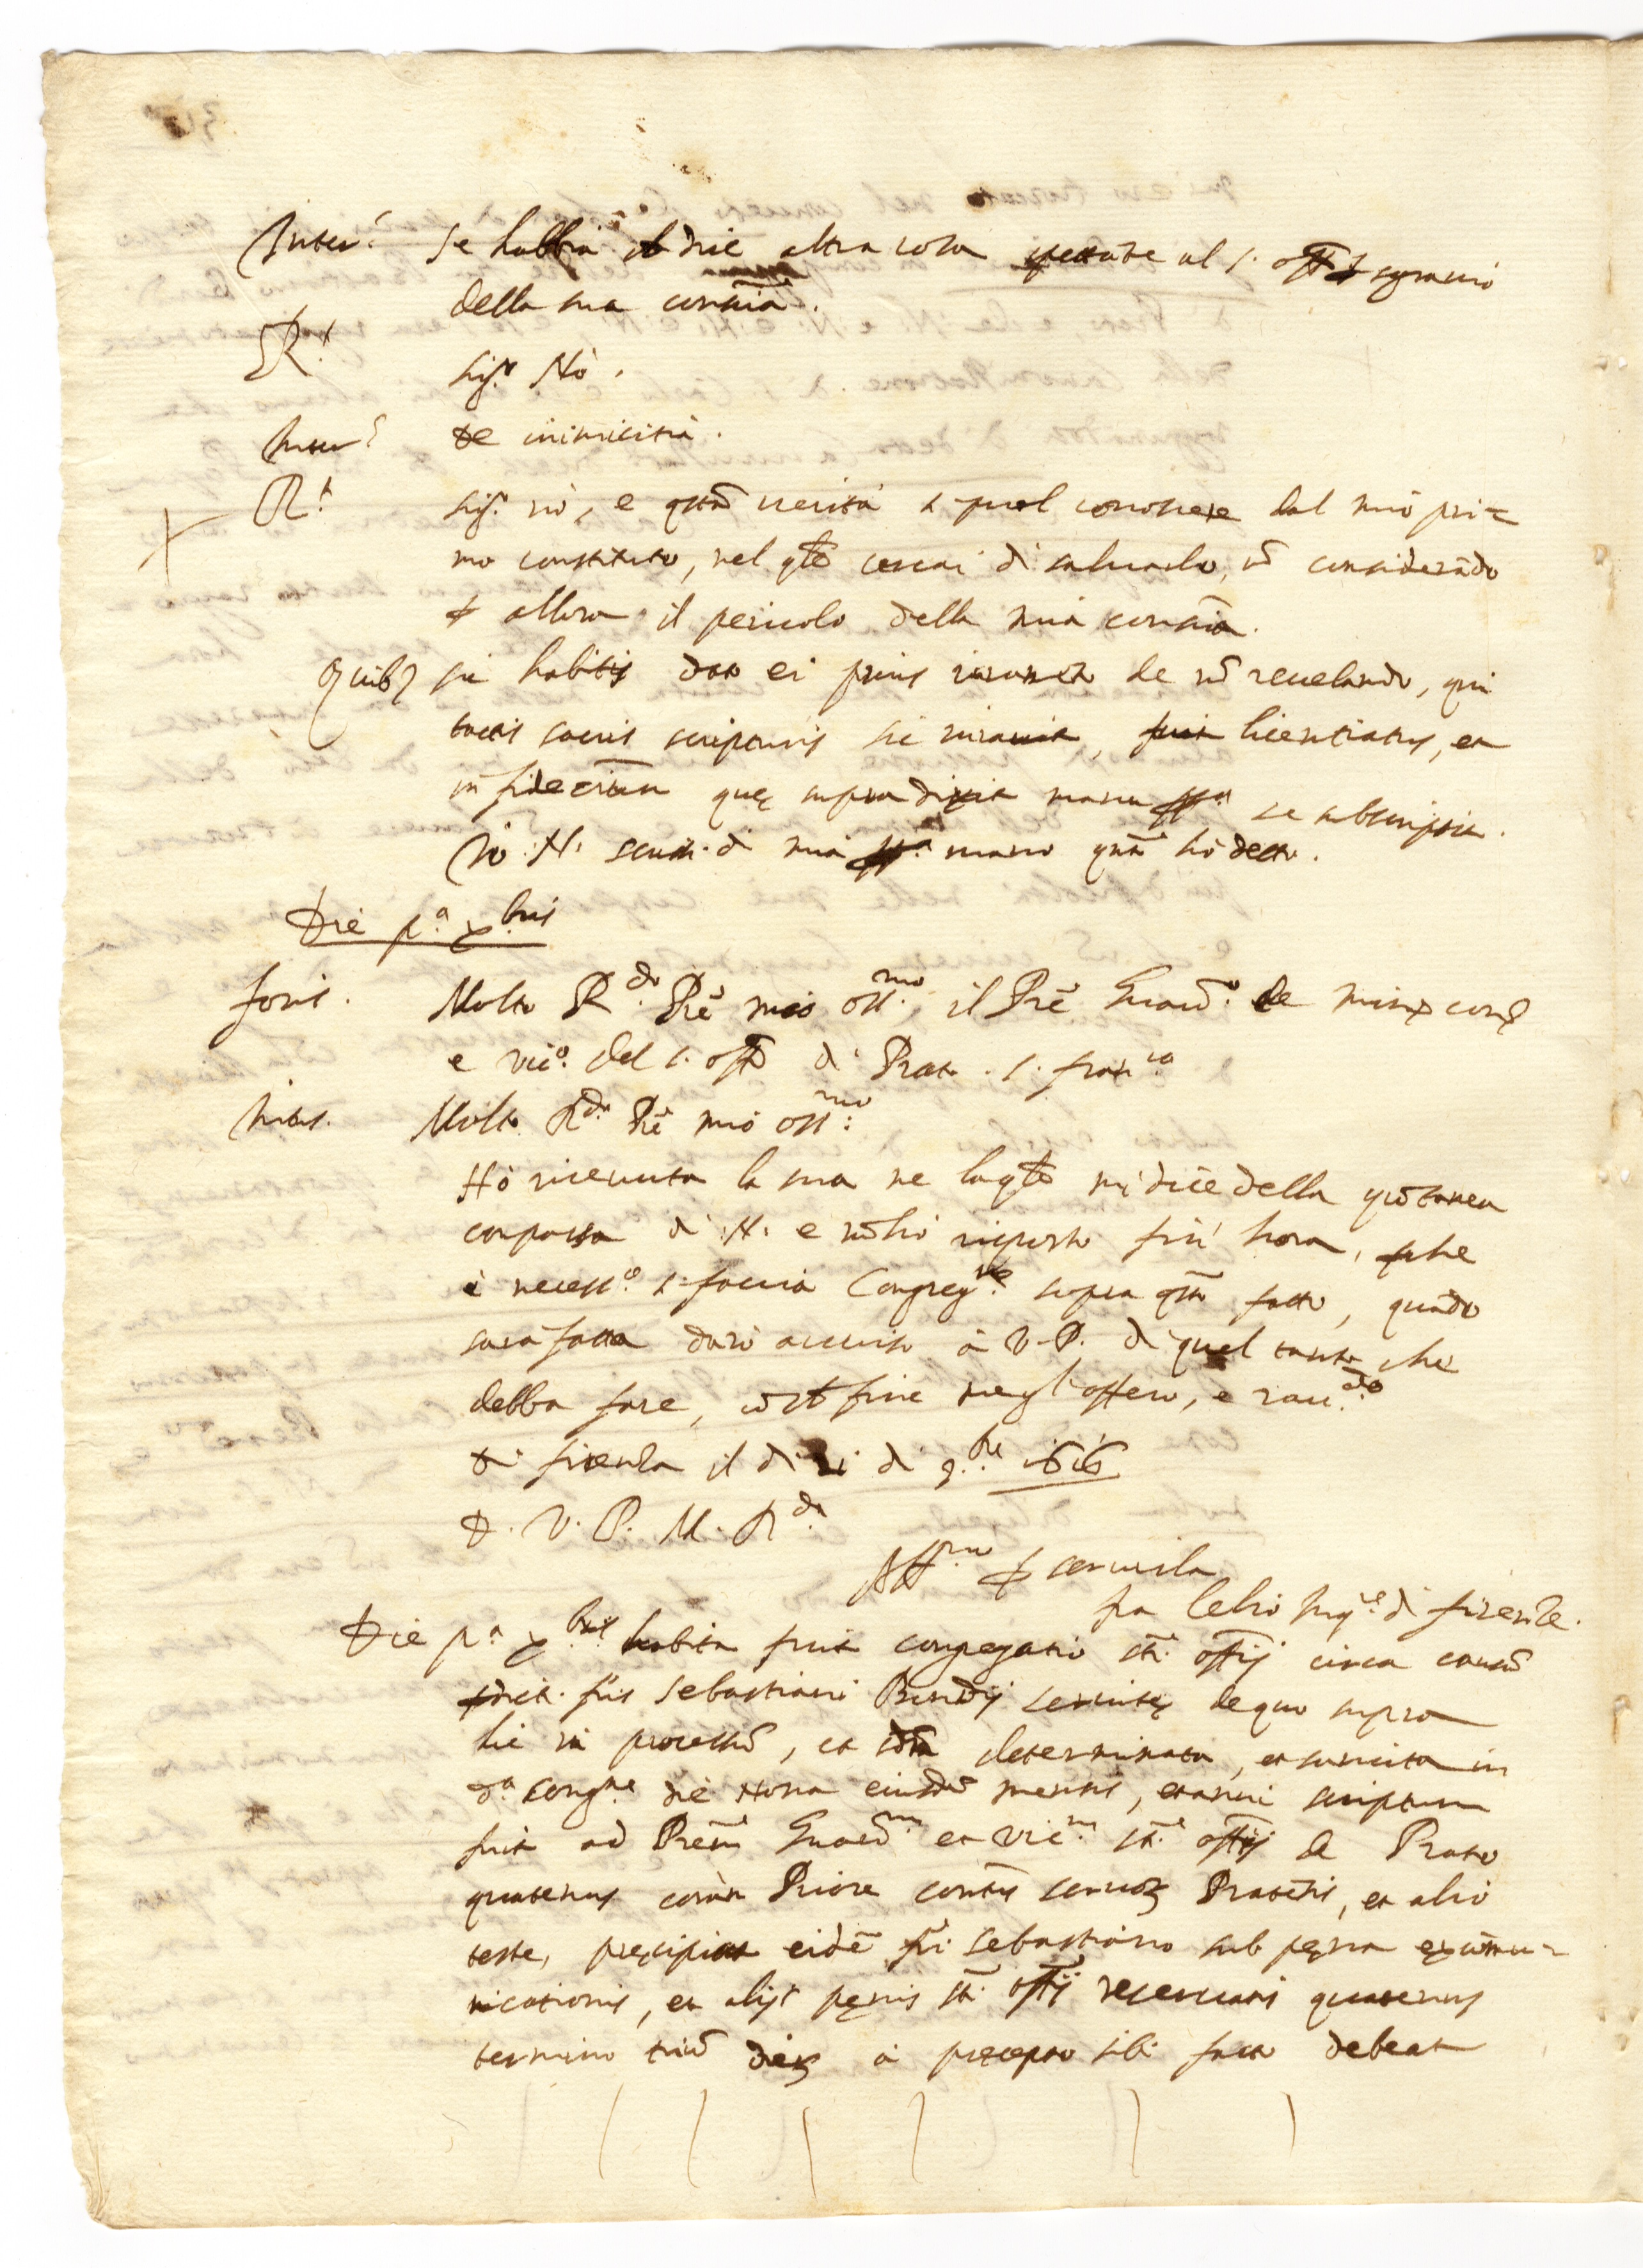 Inter.s Se habbia da dire altra cosa spettante al S. Off.o per sgravio
della sua conscia.
R.t Sig.r Nò.
Inter.s de inimicitia.
R.t Sig.r nò, e questa verità si puol conoscere dal mio pri=
mo constituto, nel qle cercai di salvarlo, nō considerādo
p allora il pericolo della mia conscia.
Quibȝ sic habitis dato ei prius iuramto de nō revelando, qui
tactis sacris scripturis sic iuravit, fuit licentiatus, et
in fidem quę supra dixit manu ppa se subscripsit.
Io .N. scrissi di mia ppa mano qnto hò detto.
Die p.a X.bris
foris. Molto R.do Prē mio oss.mo il Prē Guard.o de Min. Conv.
e Vic.o del S. Offo di Prato. S. Fran.co
Intus. Molto R.do Prē mio oss.mo
Hò ricevuta la sua ne la qle mi dice della spōtanea
comparsa di .N. e nō hò risposto fin' hora, che
è necess.o si faccia Congreg.ne sopra qsto fatto, quādo
sarà fatta darò avviso à V.P. di quel tanto che
debba fare, cō tal fine me gl'offero, e racc.do
di Firenza il di di 9.bre 1616
D. V. P. M. R.da
Aff.mo p servirla
fra Lelio Inq.re di Firenze.
Die p.a X.bris habita fuit congregatio sti offitij circa causā
frīs Sebastiani servitę de quo supra
hic in processu, et determinata, et sancita in
d.a cong.ne die Nona eiusdē mensis, et anni scriptum
fuit ad Prēm Guard.m et Vic.m sti offitij de Prato
quatenus corā Priore convtus servoȝ Pratēsis, et alio
teste, pręcipiat eidē fri Sebastiano sub pęna excōmu=
nicationis, et alijs pęnis sti offitij reservatis quatenus
termino triū dieȝ à pręcepto sibi facto debeat